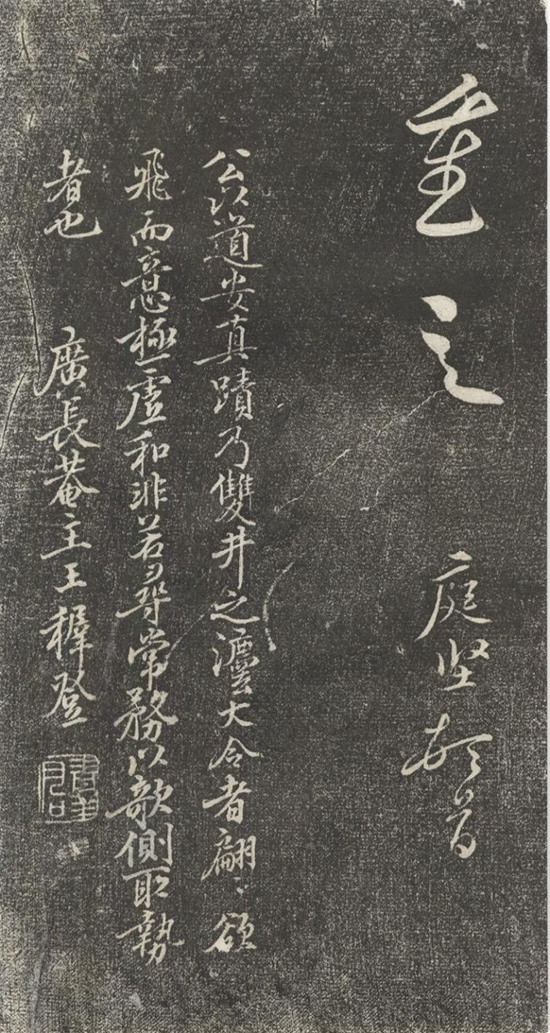 重之
庭坚頓首
公以道安真蹟乃雙井之灋大令者翩〻欲
飛而意極虛和非若尋常務以欹側取勢
者也
廣長菴主王穉登